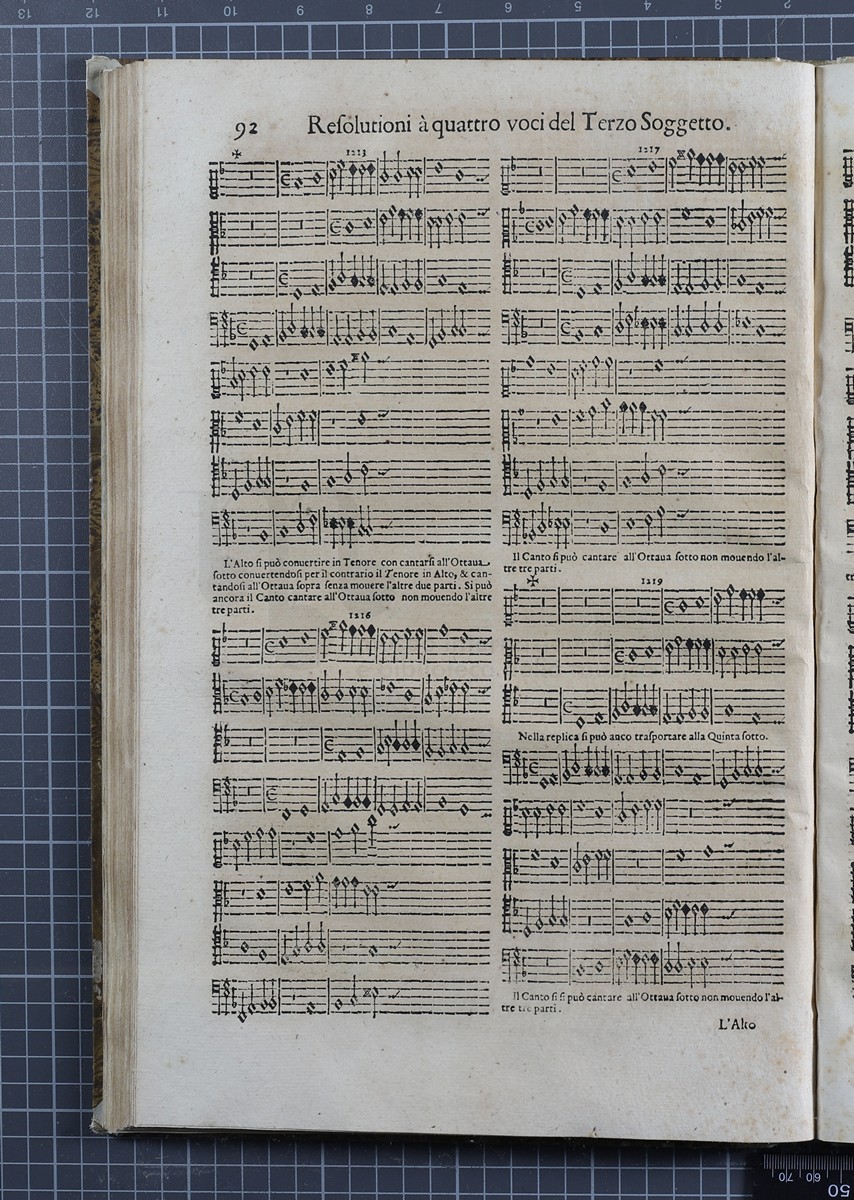 92 Reſolutioni à quattro voci del Terzo Soggetto.
1213
L'Alto ſi può conuertire in Tenore con cantarſi all'Ottaua
ſotto conuertendoſi per il contrario il Tenore in Alto, & can-
tandoſi all'Ottaua sopra ſenza mouere l'altre due parti. Si può
ancora il Canto cantare all'Ottaua ſotto non mouendo l'altre
tre parti.
1216
1217
Il Canto ſi può cantare all'Ottaua ſotto non mouendo l'al-
tre tre parti.
1219
Nella replica ſi può anco traſportare alla Quinta ſotto.
Il Canto ſi ſi può cantare all'Ottaua ſotto non mouendo l'al-
tre tre parti.
L'Alto
13 12 11 10 9 8 7 6 5 4 3 2
50 60 70